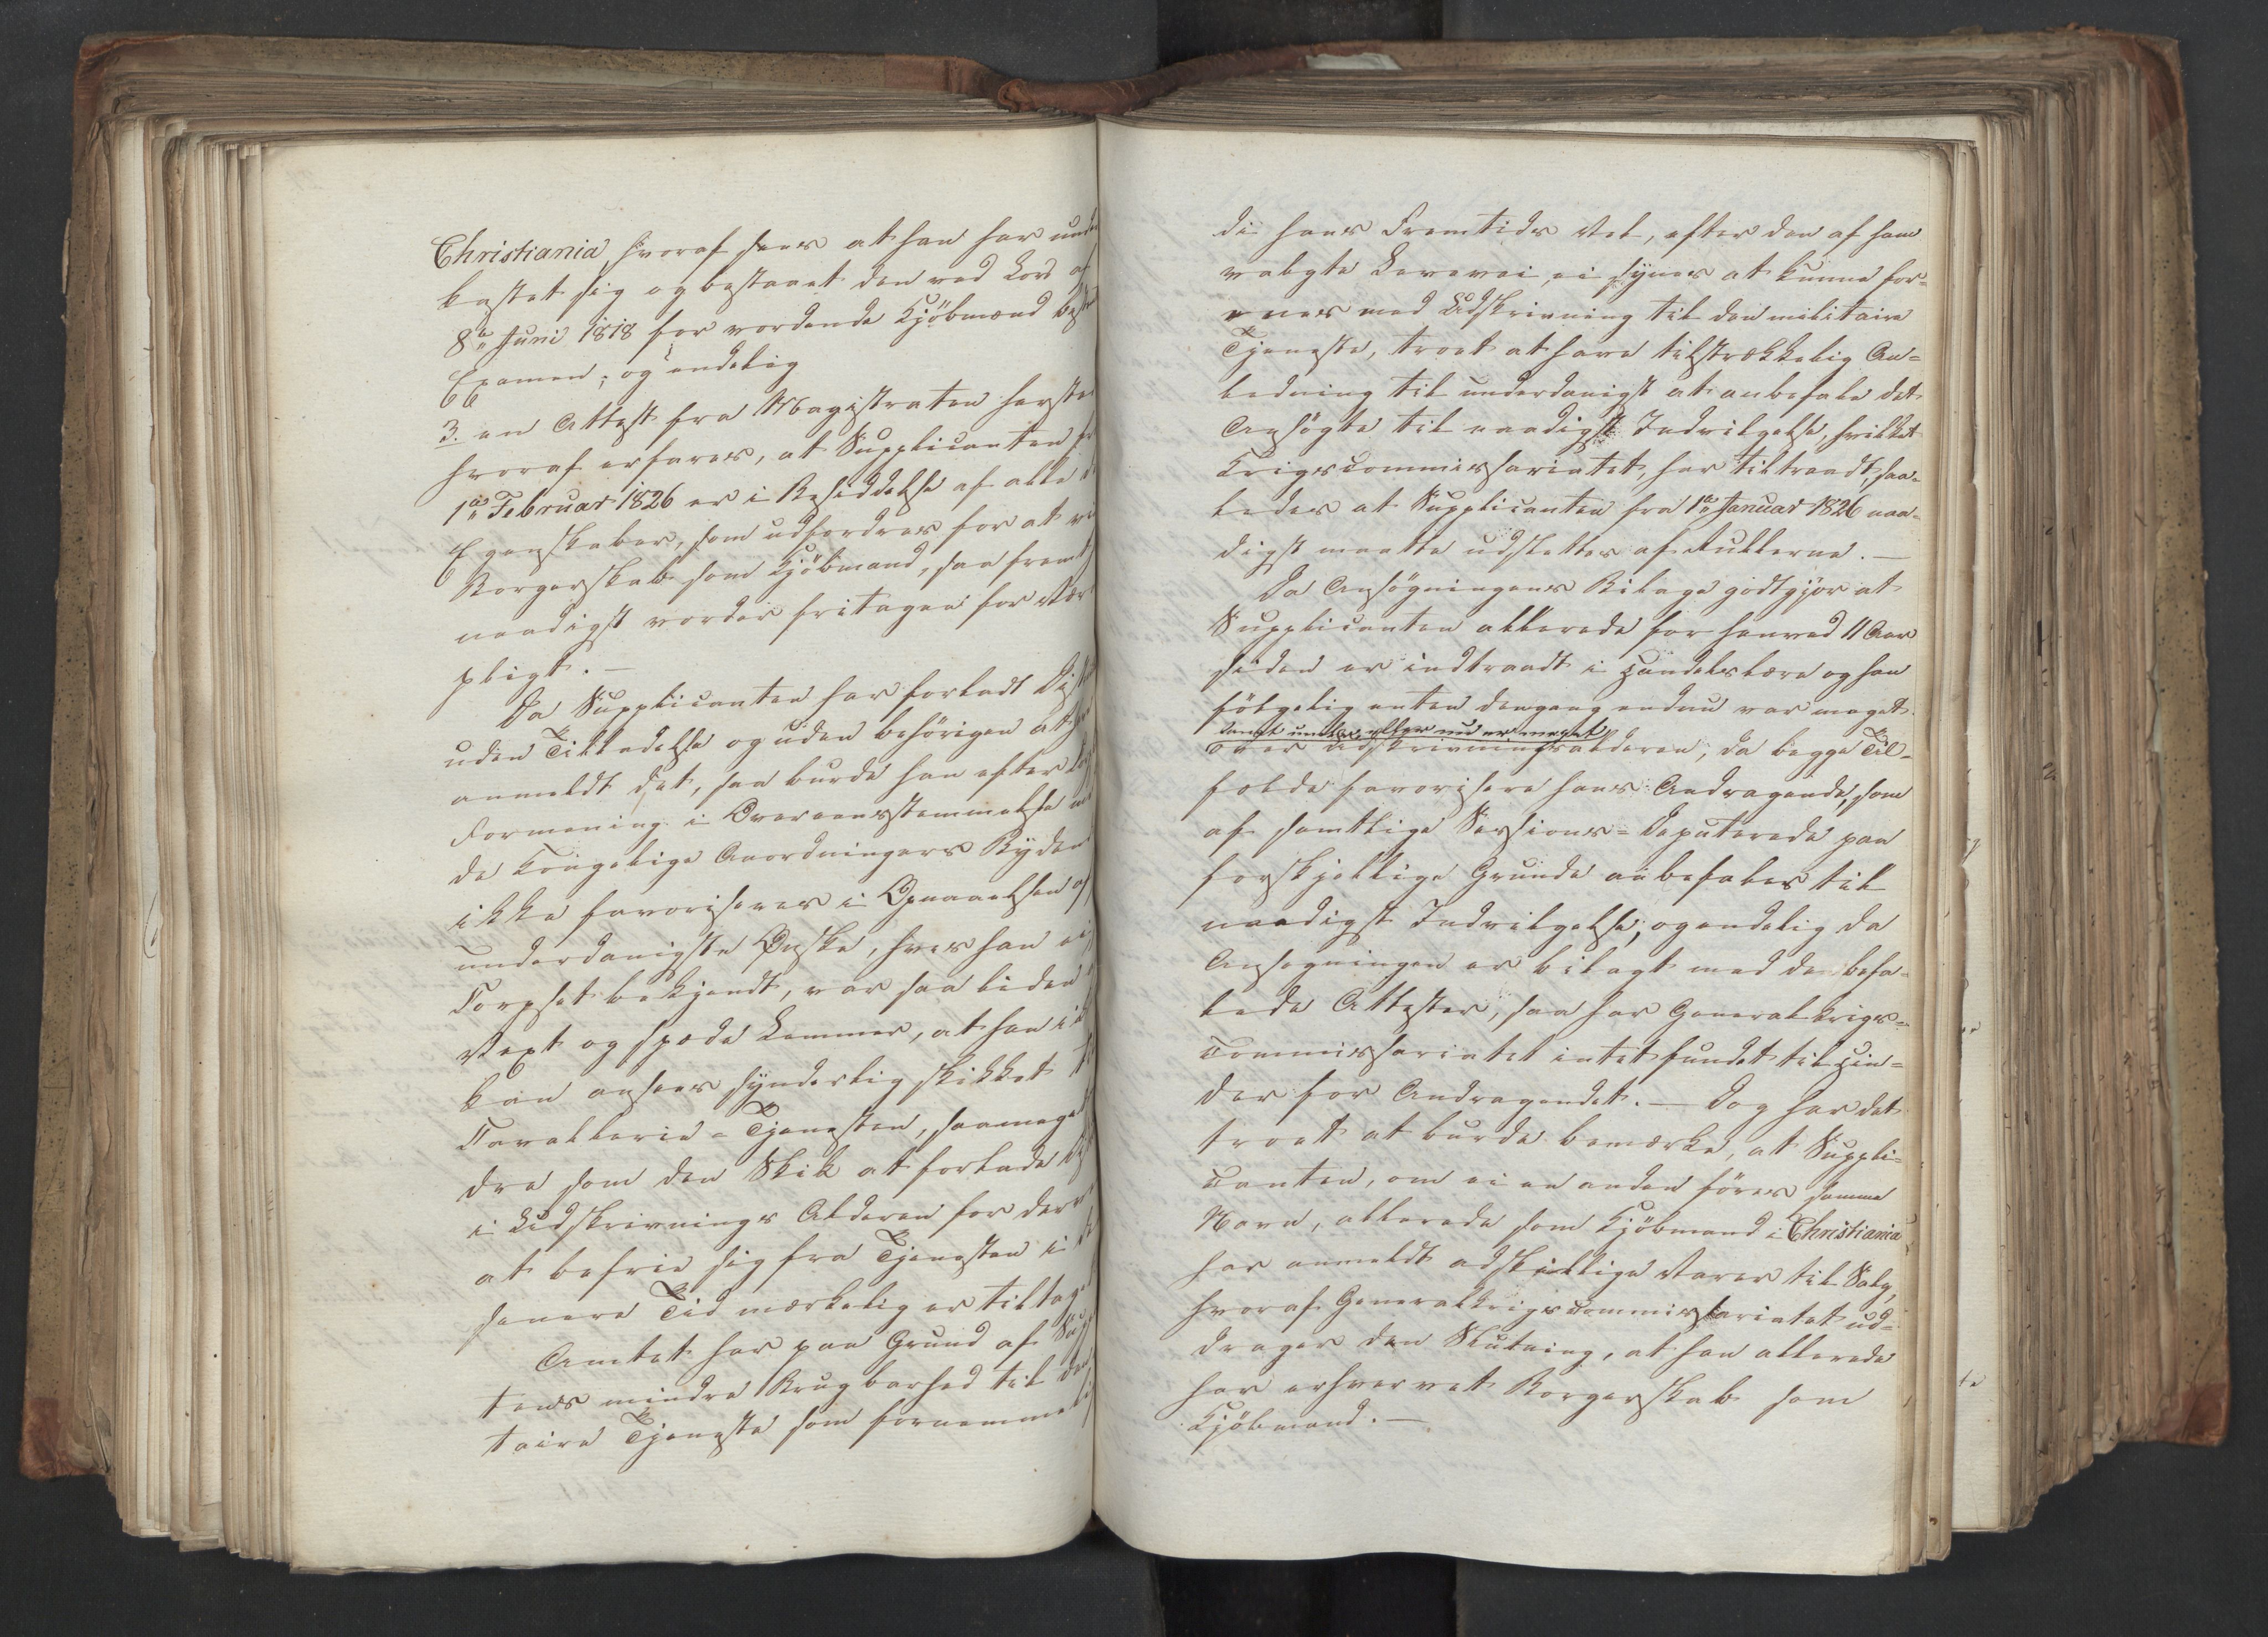 Christiania, hvoraf sees at han har under
kastet sig og bestaaet den ved Lov af
8de Juni 1818 for vordende Kjöbmænd
Examen; og endelig
3. en Attest fra Magistraten
hvoraf erfares, at Supplicanten
1ste Februar 1826 er i Besiddelse af alle
Egenskaber, som udfordres for at
Borgerskab som Kjöbmand, saa fremt
naadigst vorder fritagen for Værne
pligt. —
Da Supplicanten har forladt
uden Tilladelse og uden behörigen at have
anmeldt det, saa burde han efter
Formening i Overeensstemmelse med
de Kongelige Anordningers Bydende
ikke favoriseres i Opnaaelsen af
underdanigste Ønske, hvis han ei
Corpset bekjendt, var saa liden
Vext og spæde Lemmer, at han ikke
kan ansees synderlig skikket til
Cavallerie-Tjenesten, saameget
dre som den Skik at forlade
i Udskrivnings Alderen for derved
at befrie sig fra Tjenesten i
senere Tid mærkelig er tiltaget
Amtet har paa Grund af
tens mindre Brugbarhed til den
taire Tjeneste som fornemmelig
di hans Fremtids Vel, efter den af ham
valgte Levevei, ei synes at kunne for=
enes med Udskrivning til den militaire
Tjeneste, troet at have tilstrækkelig An=
ledning til underdanigst at anbefale det
Ansögte til naadigst Indvilgelse, hvilket
Krigscommissariatet, har tiltraadt, saa=
ledes at Supplicanten fra 1ste Januar 1826 naa=
digst maatte udslettes af Rullerne. —
Da Ansögningens Bilage godtgjör at
Supplicanten allerede for henved 11 Aar
siden er indtraadt i Handelslære og han
fölgelig enten dengang endnu var meget
langt under eller nu er meget
over Udskrivningsalderen, da begge Til=
fælde favorisere hans Andragende, som
af samtlige Sessions-Deputerede paa
forskjellige Grunde anbefales til
naadigst Indvilgelse, og endelig da
Ansøgningen er bilagt med de befa=
lede Attester, saa har Generalkrigs=
Commissariatet intet fundet til Hin=
der for Andragendet. — Dog har det
troet at burde bemærke, at Suppli=
canten, om ei en anden förer samme
Navn, allerede som Kjöbmand i Christiania
har anmeldt adskillige Varer til Salg,
hvoraf Generalkrigscommissariatet ud=
drager den Slutning, at han allerede
har erhvervet Borgerskab som
Kjöbmand. —